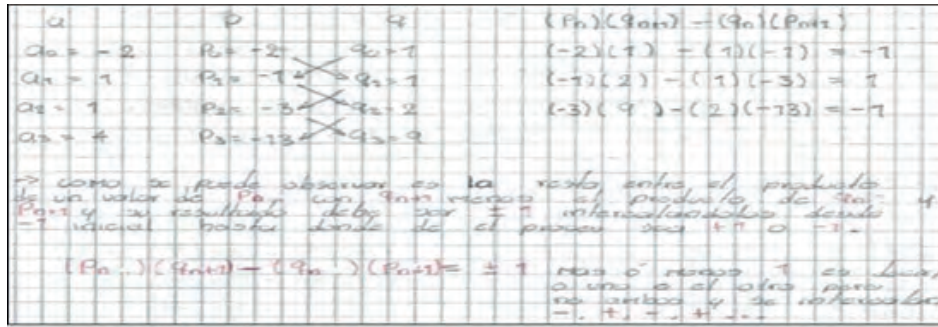 a p q (Pn)(qn+1) - (qn)(Pn+1)
a0 = -2 P0 = -2 q0 = 1 (-2)(1) - (1)(-1) = -1
a1 = 1 P1 = -1 q1 = 1 (-1)(2) - (1)(-3) = 1
a2 = 1 P2 = -3 q2 = 2 (-3)(9) - (2)(-13) = -1
a3 = 4 P3 = -13 q3 = 9
→ como se puede observar es la resta entre el producto
de un valor de Pn, con qn+1 menos el producto de qn y
Pn+1 y su resultado debe ser ±1 intercalandolos desde
-1 inicial hasta donde de el proceso sea +1 o -1.
(Pn)(qn+1) - (qn)(Pn+1) = ± 1 mas ó menos 1 es
o uno o el otro pero
no ambos y se
-, +, -, + ...